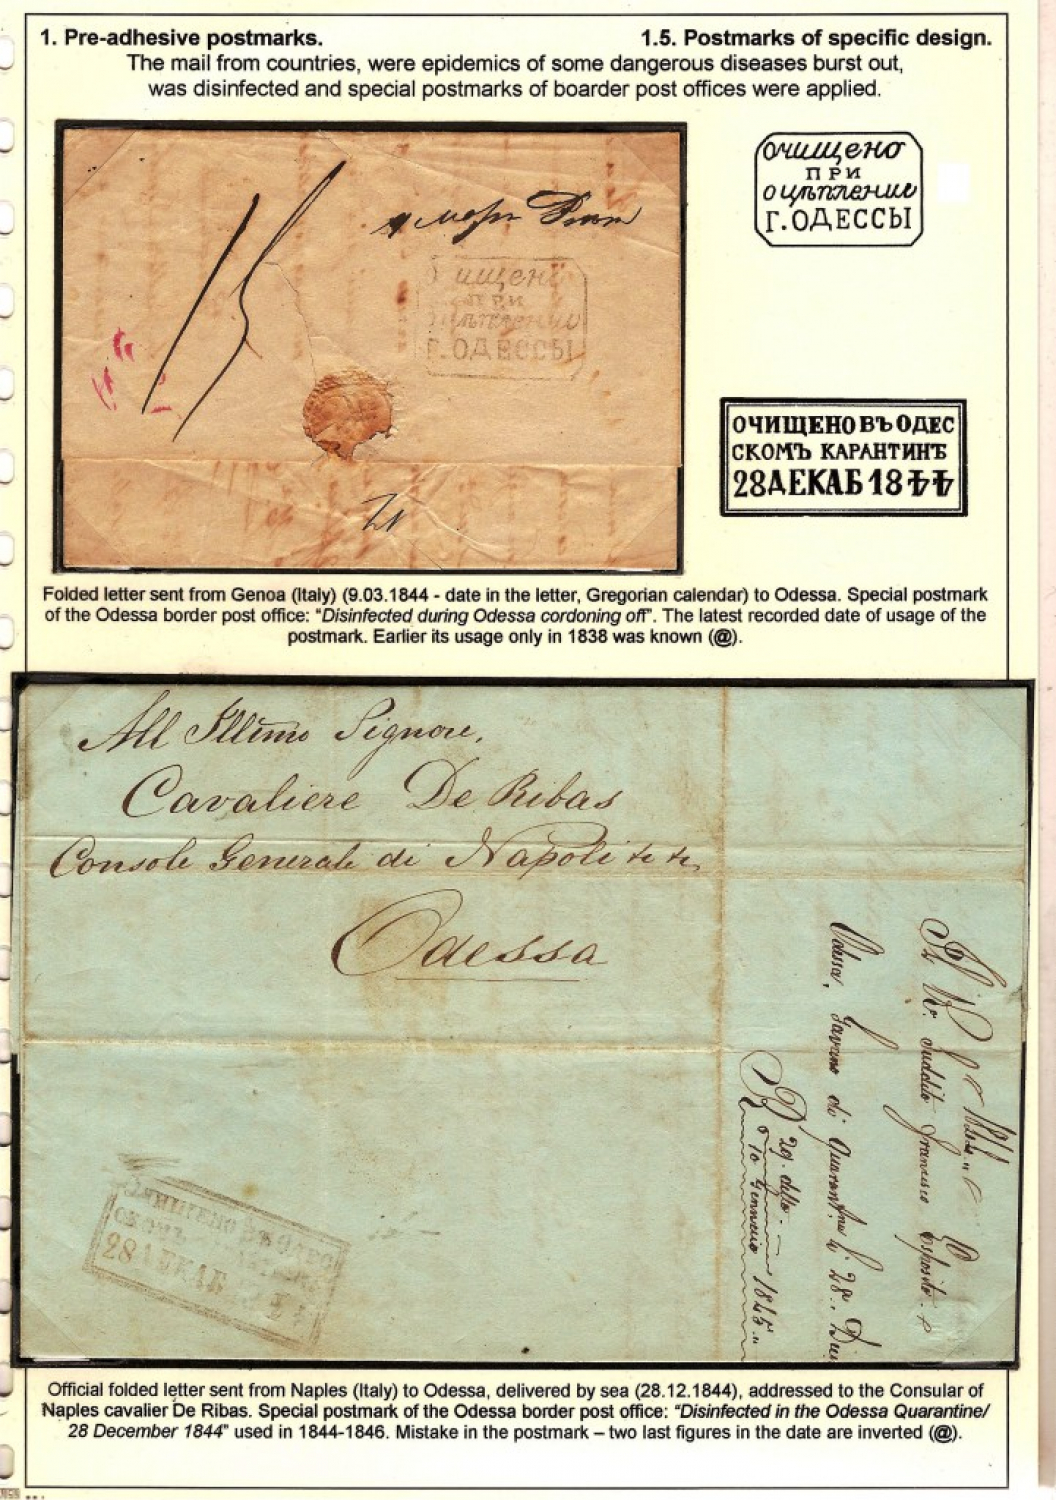 1. Pre-adhesive postmarks. 1.5. Postmarks of specific design.
The mail from countries, were epidemics of some dangerous diseases burst out,
was disinfected and special postmarks of boarder post offices were applied.
очищено
ПРИ
оцѣпленіе
Г. ОДЕССЫ
15
ищено
ПРИ
Г. ОДЕССЫ
ОЧИЩЕНО ВЪ ОДЕС
СКОМЪ КАРАНТИНѢ
28 ДЕКАБ 1844
Folded letter sent from Genoa (Italy) (9.03.1844 - date in the letter, Gregorian calendar) to Odessa. Special postmark
of the Odessa border post office: "Disinfected during Odessa cordoning off". The latest recorded date of usage of the
postmark. Earlier its usage only in 1838 was known (@).
All Illimo Signore,
Cavaliere De Ribas
Console Generale di Napoli
Odessa
Suddito Francesco Esposito
Odessa, di 28
29. detto
10 Gennaio 1845
ОЧИЩЕНО ВЪ ОДЕС
СКОМЪ
28 ДЕКАБ
Official folded letter sent from Naples (Italy) to Odessa, delivered by sea (28.12.1844), addressed to the Consular of
Naples cavalier De Ribas. Special postmark of the Odessa border post office: "Disinfected in the Odessa Quarantine/
28 December 1844" used in 1844-1846. Mistake in the postmark – two last figures in the date are inverted (@).